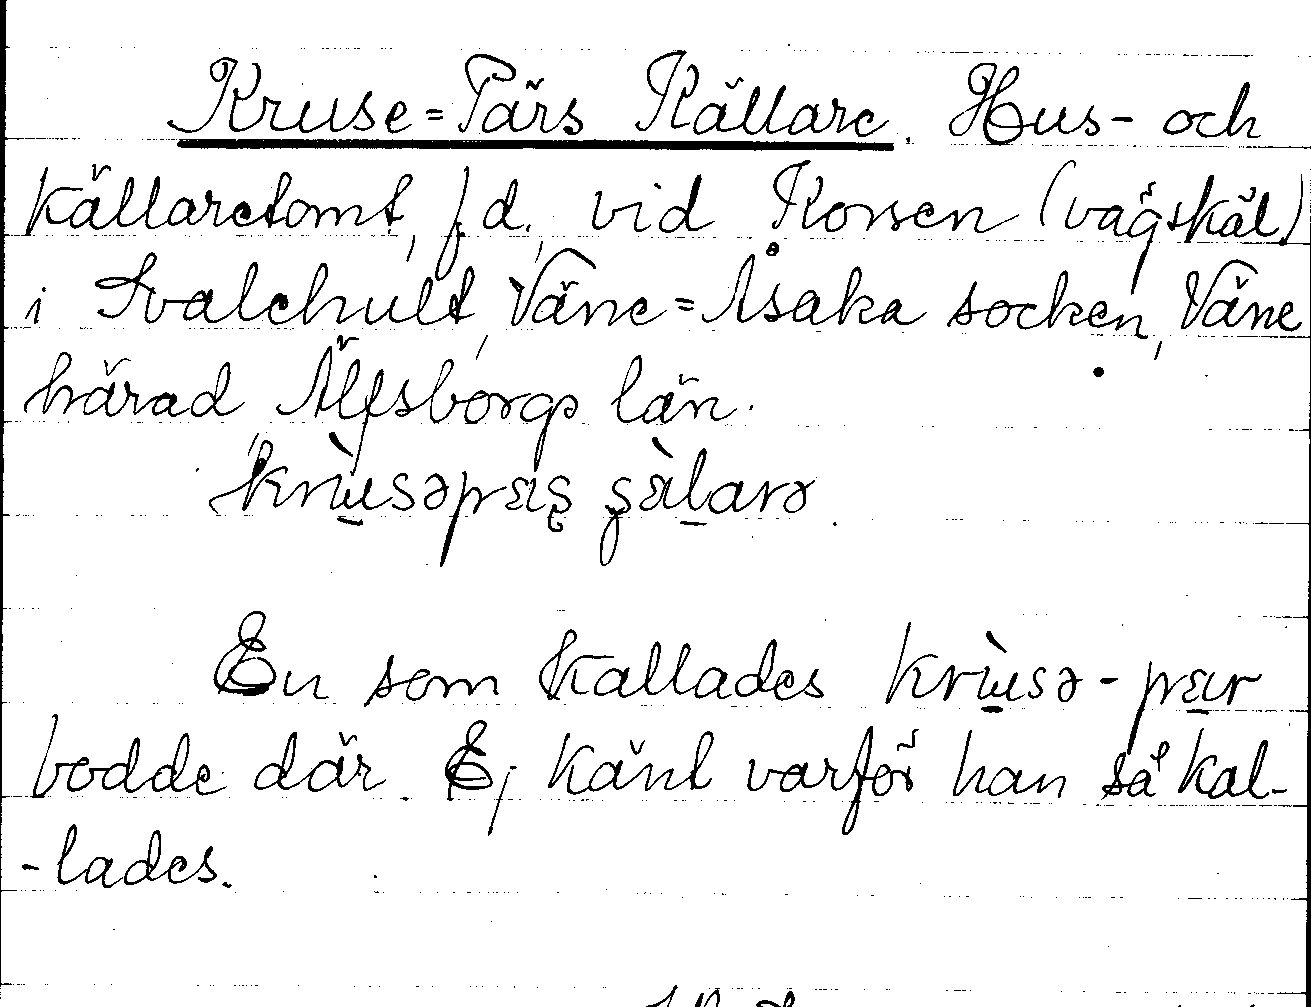 Kruse=Pärs Källare. Hus- och
källaretomt, f.d., vid Korsen (vägskäl)
i Svalehult, Väne=Åsaka socken, Väne
härad, Älfsborgs län.
En som kallades
bodde där. Ej känt varför han så kal-
-lades.